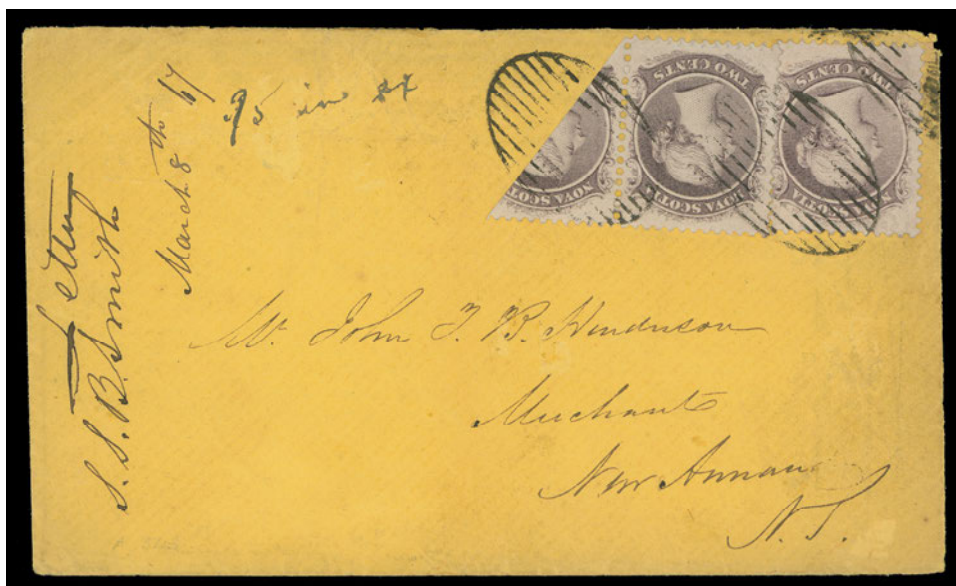 Letter
S. S. B. Smith
March 8th 67
95 in
TWO CENTS
NOVA SCOTIA
TWO CENTS
NOVA SCOTIA
NOVA SCOT
Mr. John F. B. Henderson
Merchant
New Annan
N. S.